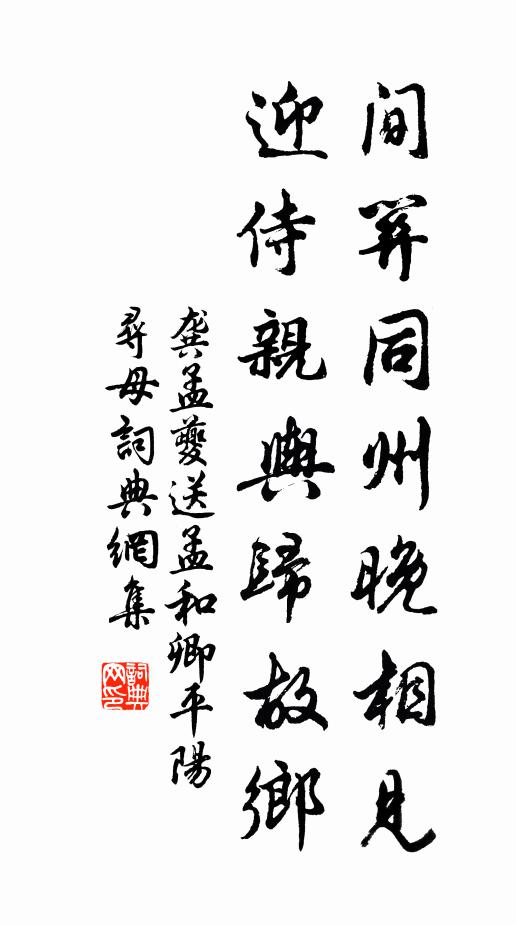 間關同州晚相見
迎侍親輿歸故鄉
龔孟夔送孟和卿平陽
尋母詞典網集
詞典
网印